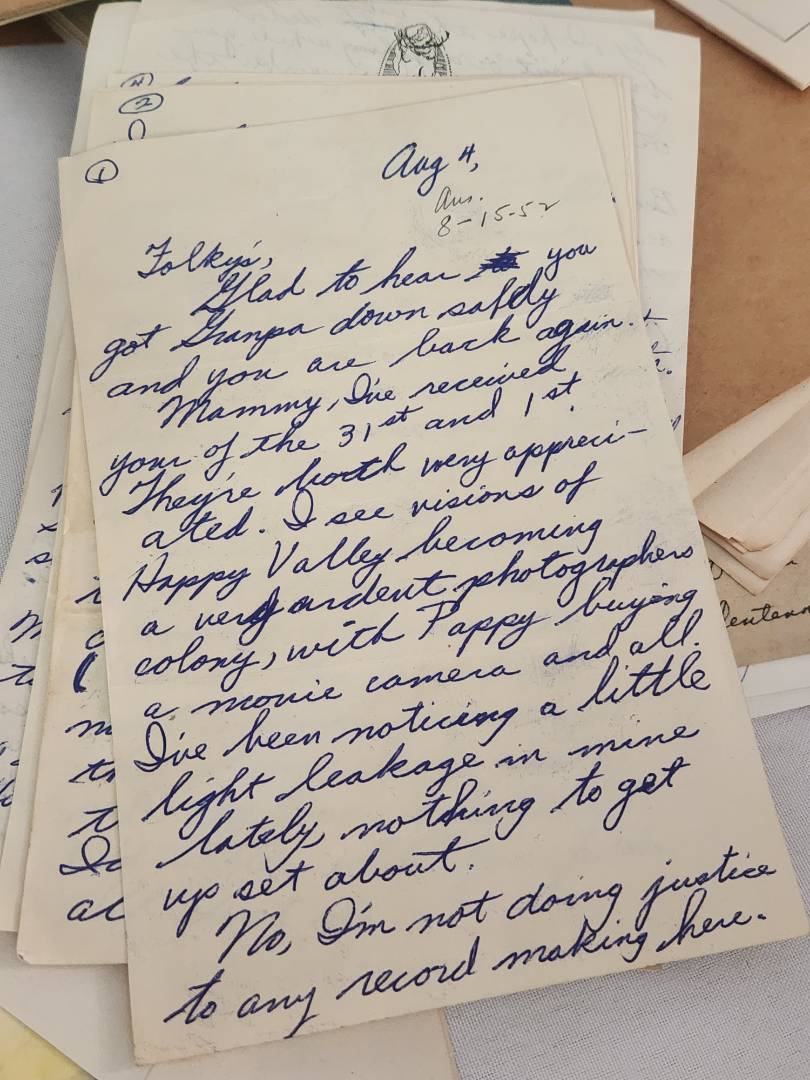 ①
Aug 4,
Ans.
8-15-52
Folkys,
Glad to hear you
got Granpa down safely
and you are back again.
Mammy, I've received
your of the 31st and 1st.
They're both very appreci-
ated. I see visions of
Happy Valley becoming
a very ardent photographers
colony, with Pappy buying
a movie camera and all.
I've been noticing a little
light leakage in mine
lately nothing to get
up set about.
No, I'm not doing justice
to any record making here.
②
④